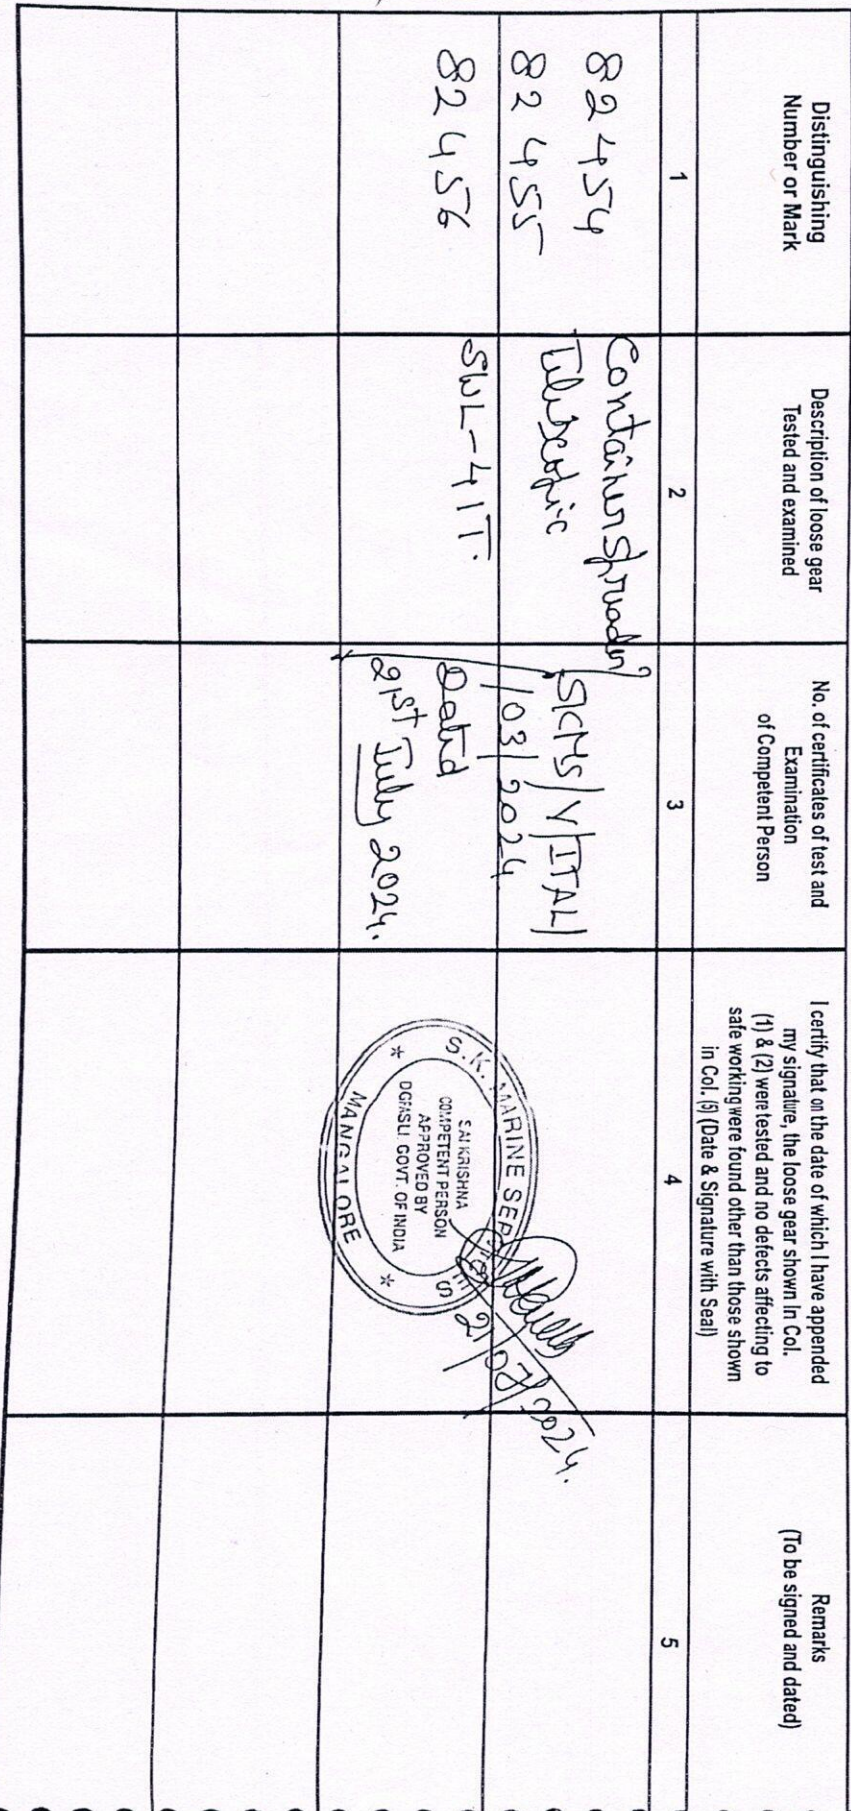 Distinguishing
Number or Mark
Description of loose gear
Tested and examined
No. of certificates of test and
Examination
of Competent Person
I certify that on the date of which I have appended
my signature, the loose gear shown In Col.
(1) & (2) were tested and no defects affecting to
safe working were found other than those shown
in Col. (5) (Date & Signature with Seal)
Remarks
(To be signed and dated)
1
2
3
4
5
82454
82455
82456
Container Spreader
Telescopic
SWL-41T.
SKMS/V/ITAL/
/03/2024
Dated
21st July 2024.
S.K. MARINE
MANGALORE
SAI KRISHNA
COMPETENT PERSON
APPROVED BY
DGFASLI. GOVT. OF INDIA
21/07/2024.